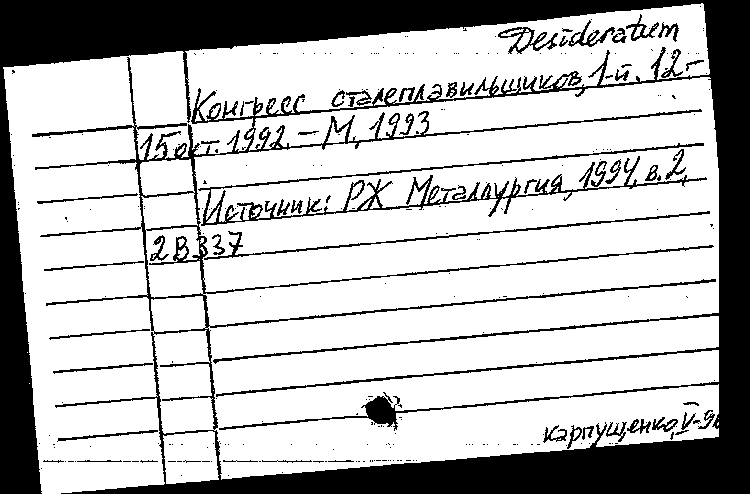 Desideratum
Конгресс сталеплавильщиков, 1-й. 12-
15 окт. 1992. – М., 1993
Источник: РЖ Металлургия, 1994, в. 2,
2В337
карпущенко, V-96